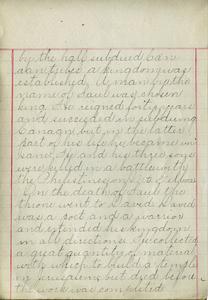 by the half subdued Can-
aanitries a kingdom was
established. A man by the
name of Saul was chosen
king. He reigned forty years
and succeeded in subduing
Canaan, but in the latter
part of his life he became in-
sane. He and his three sons
were killed in a battle with
the Philistines on Mt. Gilboa
On the death of Saul the
throne went to David. David
was a poet and a warrior
and extended his kingdom
in all directions. He collected
a great quantity of material
with which to build a temple
in Jerusalem but died before
the work was completed